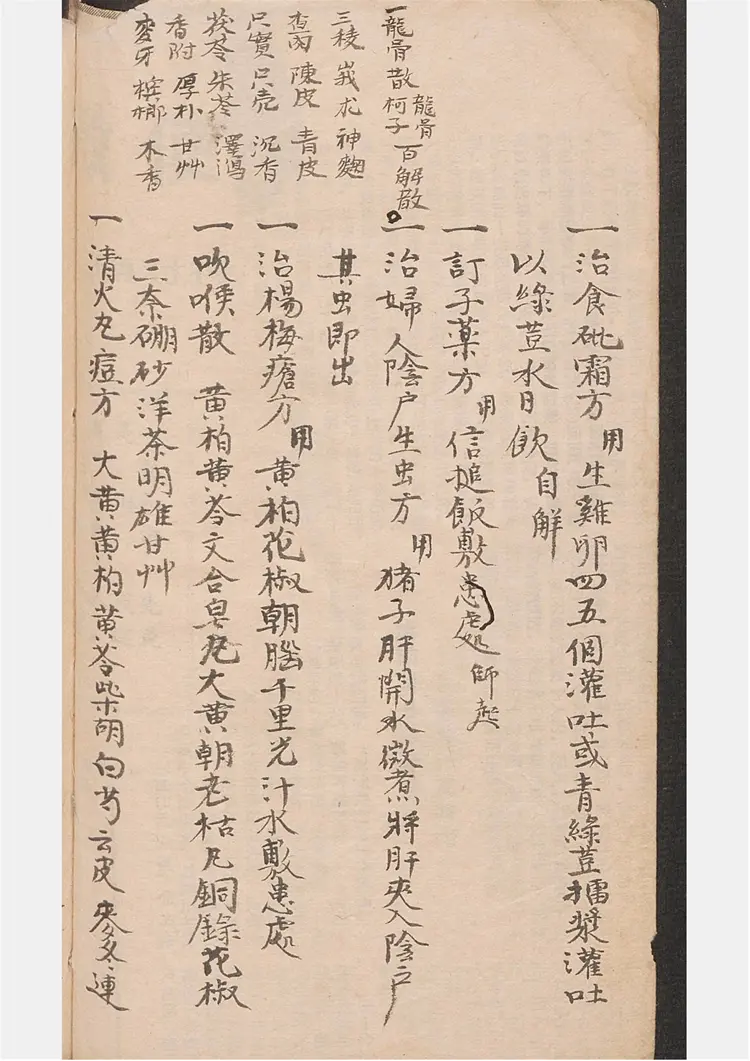 一治食砒霜方用生雞卵四五個灌吐或青綠荳擂漿灌吐
以綠荳水日飲自解
一訂子藥方用信搥飯敷患處師起
一治婦人陰户生虫方用猪子肝開水微煮將肝夾入陰户
其虫即出
一治楊梅瘡方用黄柏花椒朝腦千里光汁水敷患處
一吹喉散 黄柏黄苓文合皂凡大黄朝老枯凡銅錄花椒
三奈硼砂洋茶明雄甘艸
一清火丸痘方 大黄黄柏黄苓柴胡白芍云皮麥冬連
一龍骨散 龍骨
柯子 百解散
三稜 莪朮 神麯
查肉 陳皮 青皮
只實 只壳 沉香
茯苓 朱苓 澤瀉
香附 厚朴 甘艸
麥牙 檳榔 木香